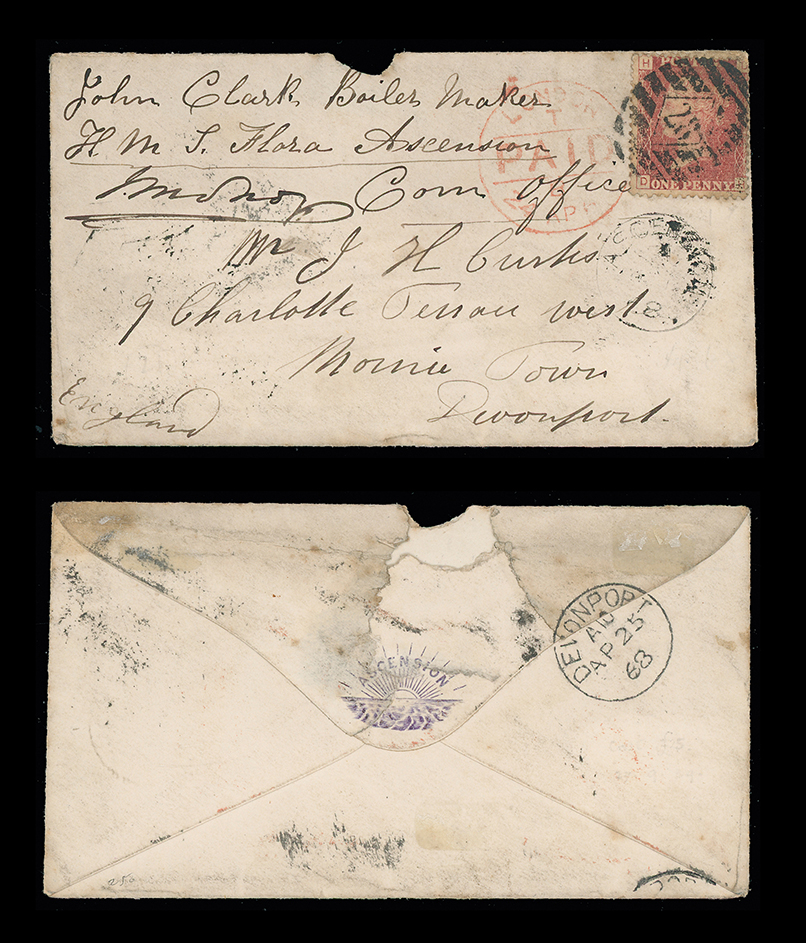 John Clark Boiler Maker
H M S Flora Ascension
Com Office
Mr J. H Curtis
9 Charlotte Terrace west
Morice Town
Devonport.
England
LONDON
PAID
AP
H
D ONE PENNY
ASCENSION
8
ASCENSION
DEVONPORT
AP 25
68